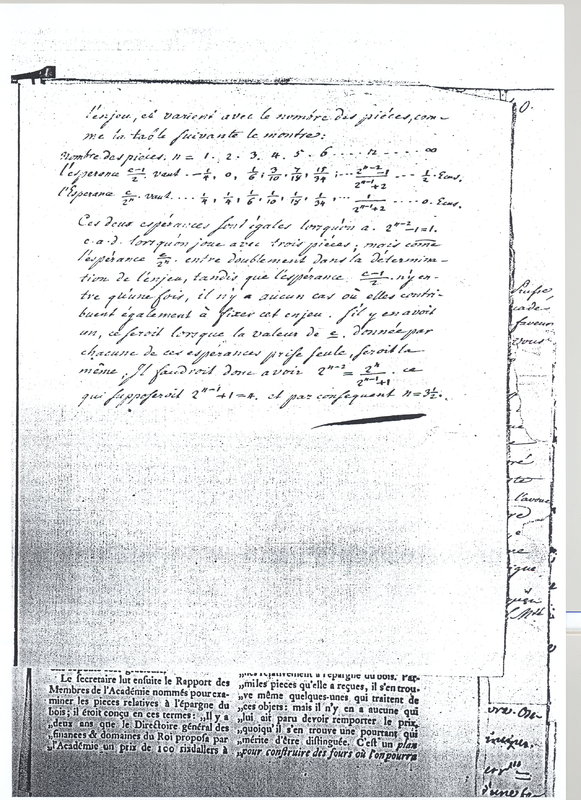 l'enjeu, et varient avec le nombre des piéces, com-
me la table suivante le montre:
Nombre des piéces. n = 1. 2. 3. 4. 5. 6 .... n .... ∞
l'esperance (e-1)/2. vaut -1/4, 0, 1/6, 3/10, 7/18, 15/34, ... (2^(n-2)-1)/(2^(n-1)+2) ... 1/2. Ecus.
l'Esperance e/2^n. vaut .... 1/4, 1/4, 1/6, 1/10, 1/18, 1/34, ... 1/(2^(n-1)+2) ... 0. Ecus.
Ces deux espérances sont égales lorsqu'on a. 2^(n-2)-1=1.
c.a.d. lorsqu'on joue avec trois piéces; mais come
l'espérance e/2^n. entre doublement dans la détermina-
tion de l'enjeu, tandis que l'espérance (e-1)/2. n'y en-
tre qu'une fois, il n'y a aucun cas où elles contri-
buent également à fixer cet enjeu. S'il y en avoit
un, ce seroit lorsque la valeur de e. donnée par
chacune de ces espérances prise seule, seroit la
même. Il faudroit donc avoir 2^(n-2) = 2^n/(2^(n-1)+1). ce
qui supposeroit 2^(n-1)+1=4. et par consequent n=3½.
0.
faveur
vous
l'avoue
Le secretaire lut ensuite le Rapport des
Membres de l'Académie nommés pour exa-
miner les pieces relatives à l'épargne du
bois; il étoit conçu en ces termes: „Il y a
„deux ans que le Directoire général des
„finances & domaines du Roi proposa par
„l'Académie un prix de 100 rixdallers à
relativement à l'épargne du bois. Par-
„miles pieces qu'elle a reçues, il s'en trou-
„ve même quelques-unes qui traitent de
„ces objets: mais il n'y en a aucune qui
„lui ait paru devoir remporter le prix,
„quoiqu'il s'en trouve une pourtant qui
„mérite d'être distinguée. C'est un plan
„pour construire des fours où l'on pourra